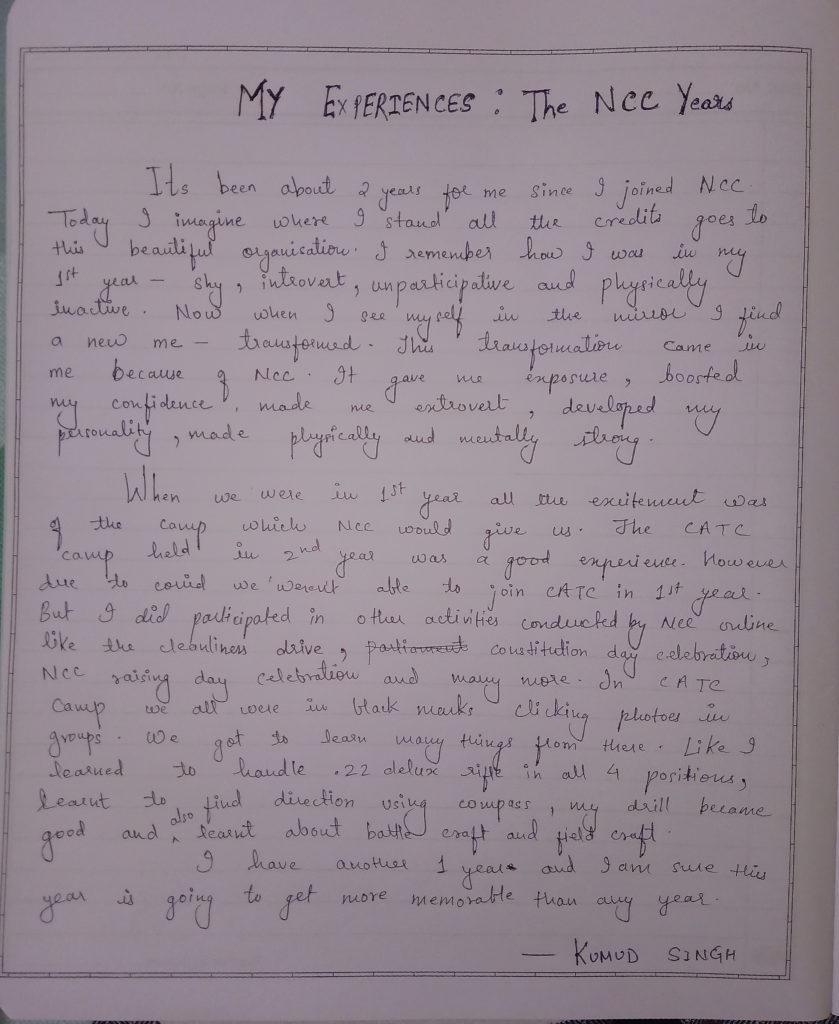 MY EXPERIENCES : The NCC Years
Its been about 2 years for me since I joined NCC.
Today I imagine where I stand all the credits goes to
this beautiful organisation. I remember how I was in my
1st year - shy, introvert, unparticipative and physically
inactive. Now when I see myself in the mirror I find
a new me - transformed. This transformation came in
me because of NCC. It gave me exposure, boosted
my confidence, made me extrovert, developed my
personality, made physically and mentally strong.
When we were in 1st year all the excitement was
of the camp which NCC would give us. The CATC
camp held in 2nd year was a good experience. However
due to covid we weren't able to join CATC in 1st year.
But I did participated in other activities conducted by NCC online
like the cleanliness drive, parliament constitution day celebration,
NCC raising day celebration and many more. In CATC
Camp we all were in black masks clicking photoes in
groups. We got to learn many things from there. Like I
learned to handle .22 delux rifle in all 4 positions,
learnt to find direction using compass, my drill became
good and also learnt about battle craft and field craft.
I have another 1 year and I am sure this
year is going to get more memorable than any year.
— KUMUD SINGH